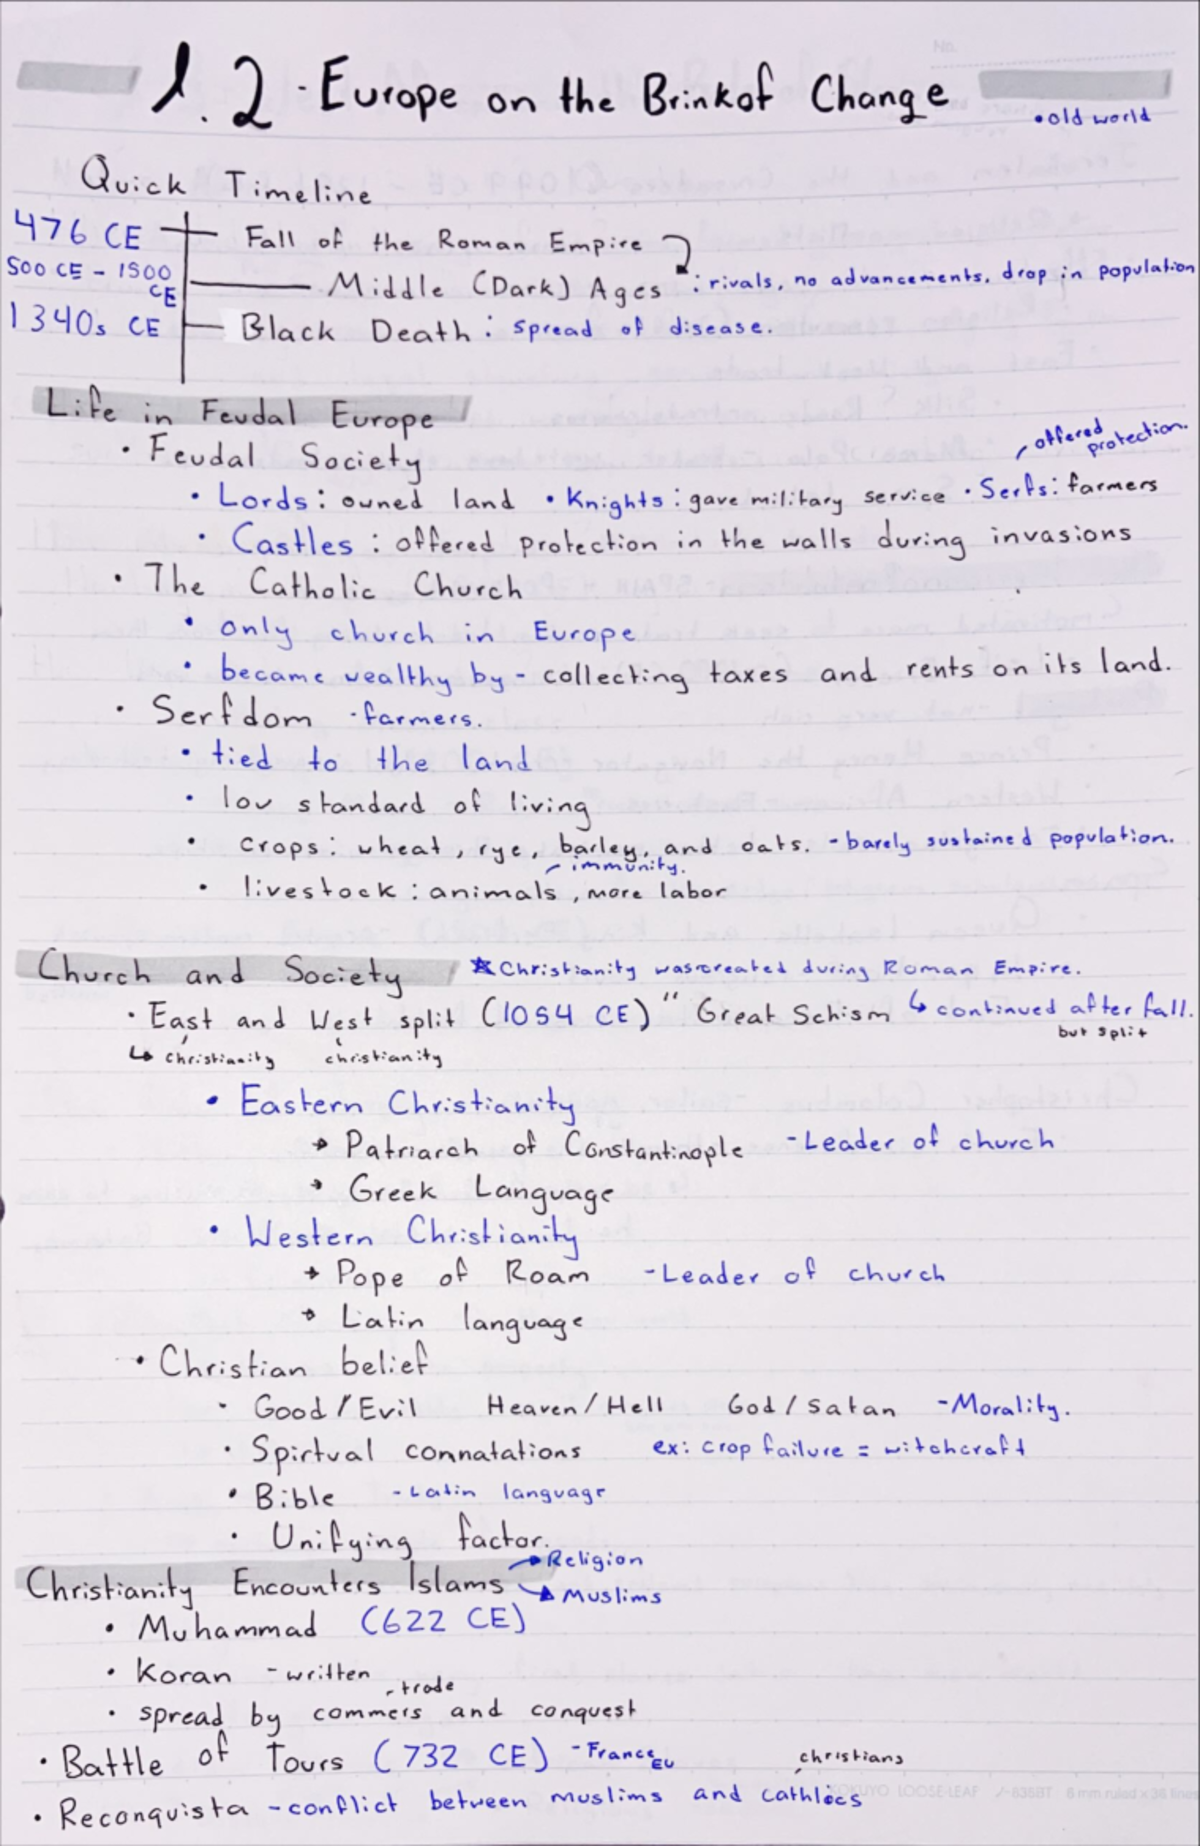 No.
1.2 - Europe on the Brink of Change
• old world
Quick Timeline
476 CE — Fall of the Roman Empire
500 CE - 1500 CE — Middle (Dark) Ages : rivals, no advancements, drop in population
1340s CE — Black Death : spread of disease.
Life in Feudal Europe
• Feudal Society
offered protection.
• Lords : owned land • Knights : gave military service • Serfs : farmers
• Castles : offered protection in the walls during invasions
• The Catholic Church
• only church in Europe
• became wealthy by - collecting taxes and rents on its land.
• Serfdom - farmers.
• tied to the land
• low standard of living
• crops : wheat, rye, barley, and oats. - barely sustained population.
- immunity.
• livestock : animals, more labor
Church and Society ★ Christianity was created during Roman Empire.
↳ continued after fall.
but split
• East and West split (1054 CE) " Great Schism
↳ christianity christianity
• Eastern Christianity
→ Patriarch of Constantinople - Leader of church
→ Greek Language
• Western Christianity
→ Pope of Roam - Leader of church
→ Latin language
• Christian belief
• Good / Evil Heaven / Hell God / Satan - Morality.
• Spirtual connatations ex: crop failure = witchcraft
• Bible - Latin language
• Unifying factor.
Christianity Encounters Islams → Religion
→ Muslims
• Muhammad (622 CE)
• Koran - written
- trade
• spread by commers and conquest
• Battle of Tours (732 CE) - France EU
christians
• Reconquista - conflict between muslims and cathlocs
KOKUYO LOOSE-LEAF ノ-836BT 6 mm ruled × 36 lines